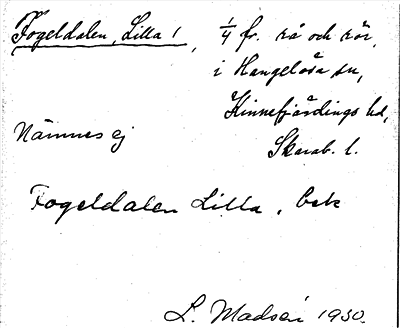 Fogeldalen, Lilla 1, 1/4 fr. rå och rör,
i Hangelösa sn,
Kinnefjärdings hd,
Skarab. l.
Nämnes ej
Fogeldalen Lilla, bek
L. Madsén 1930.